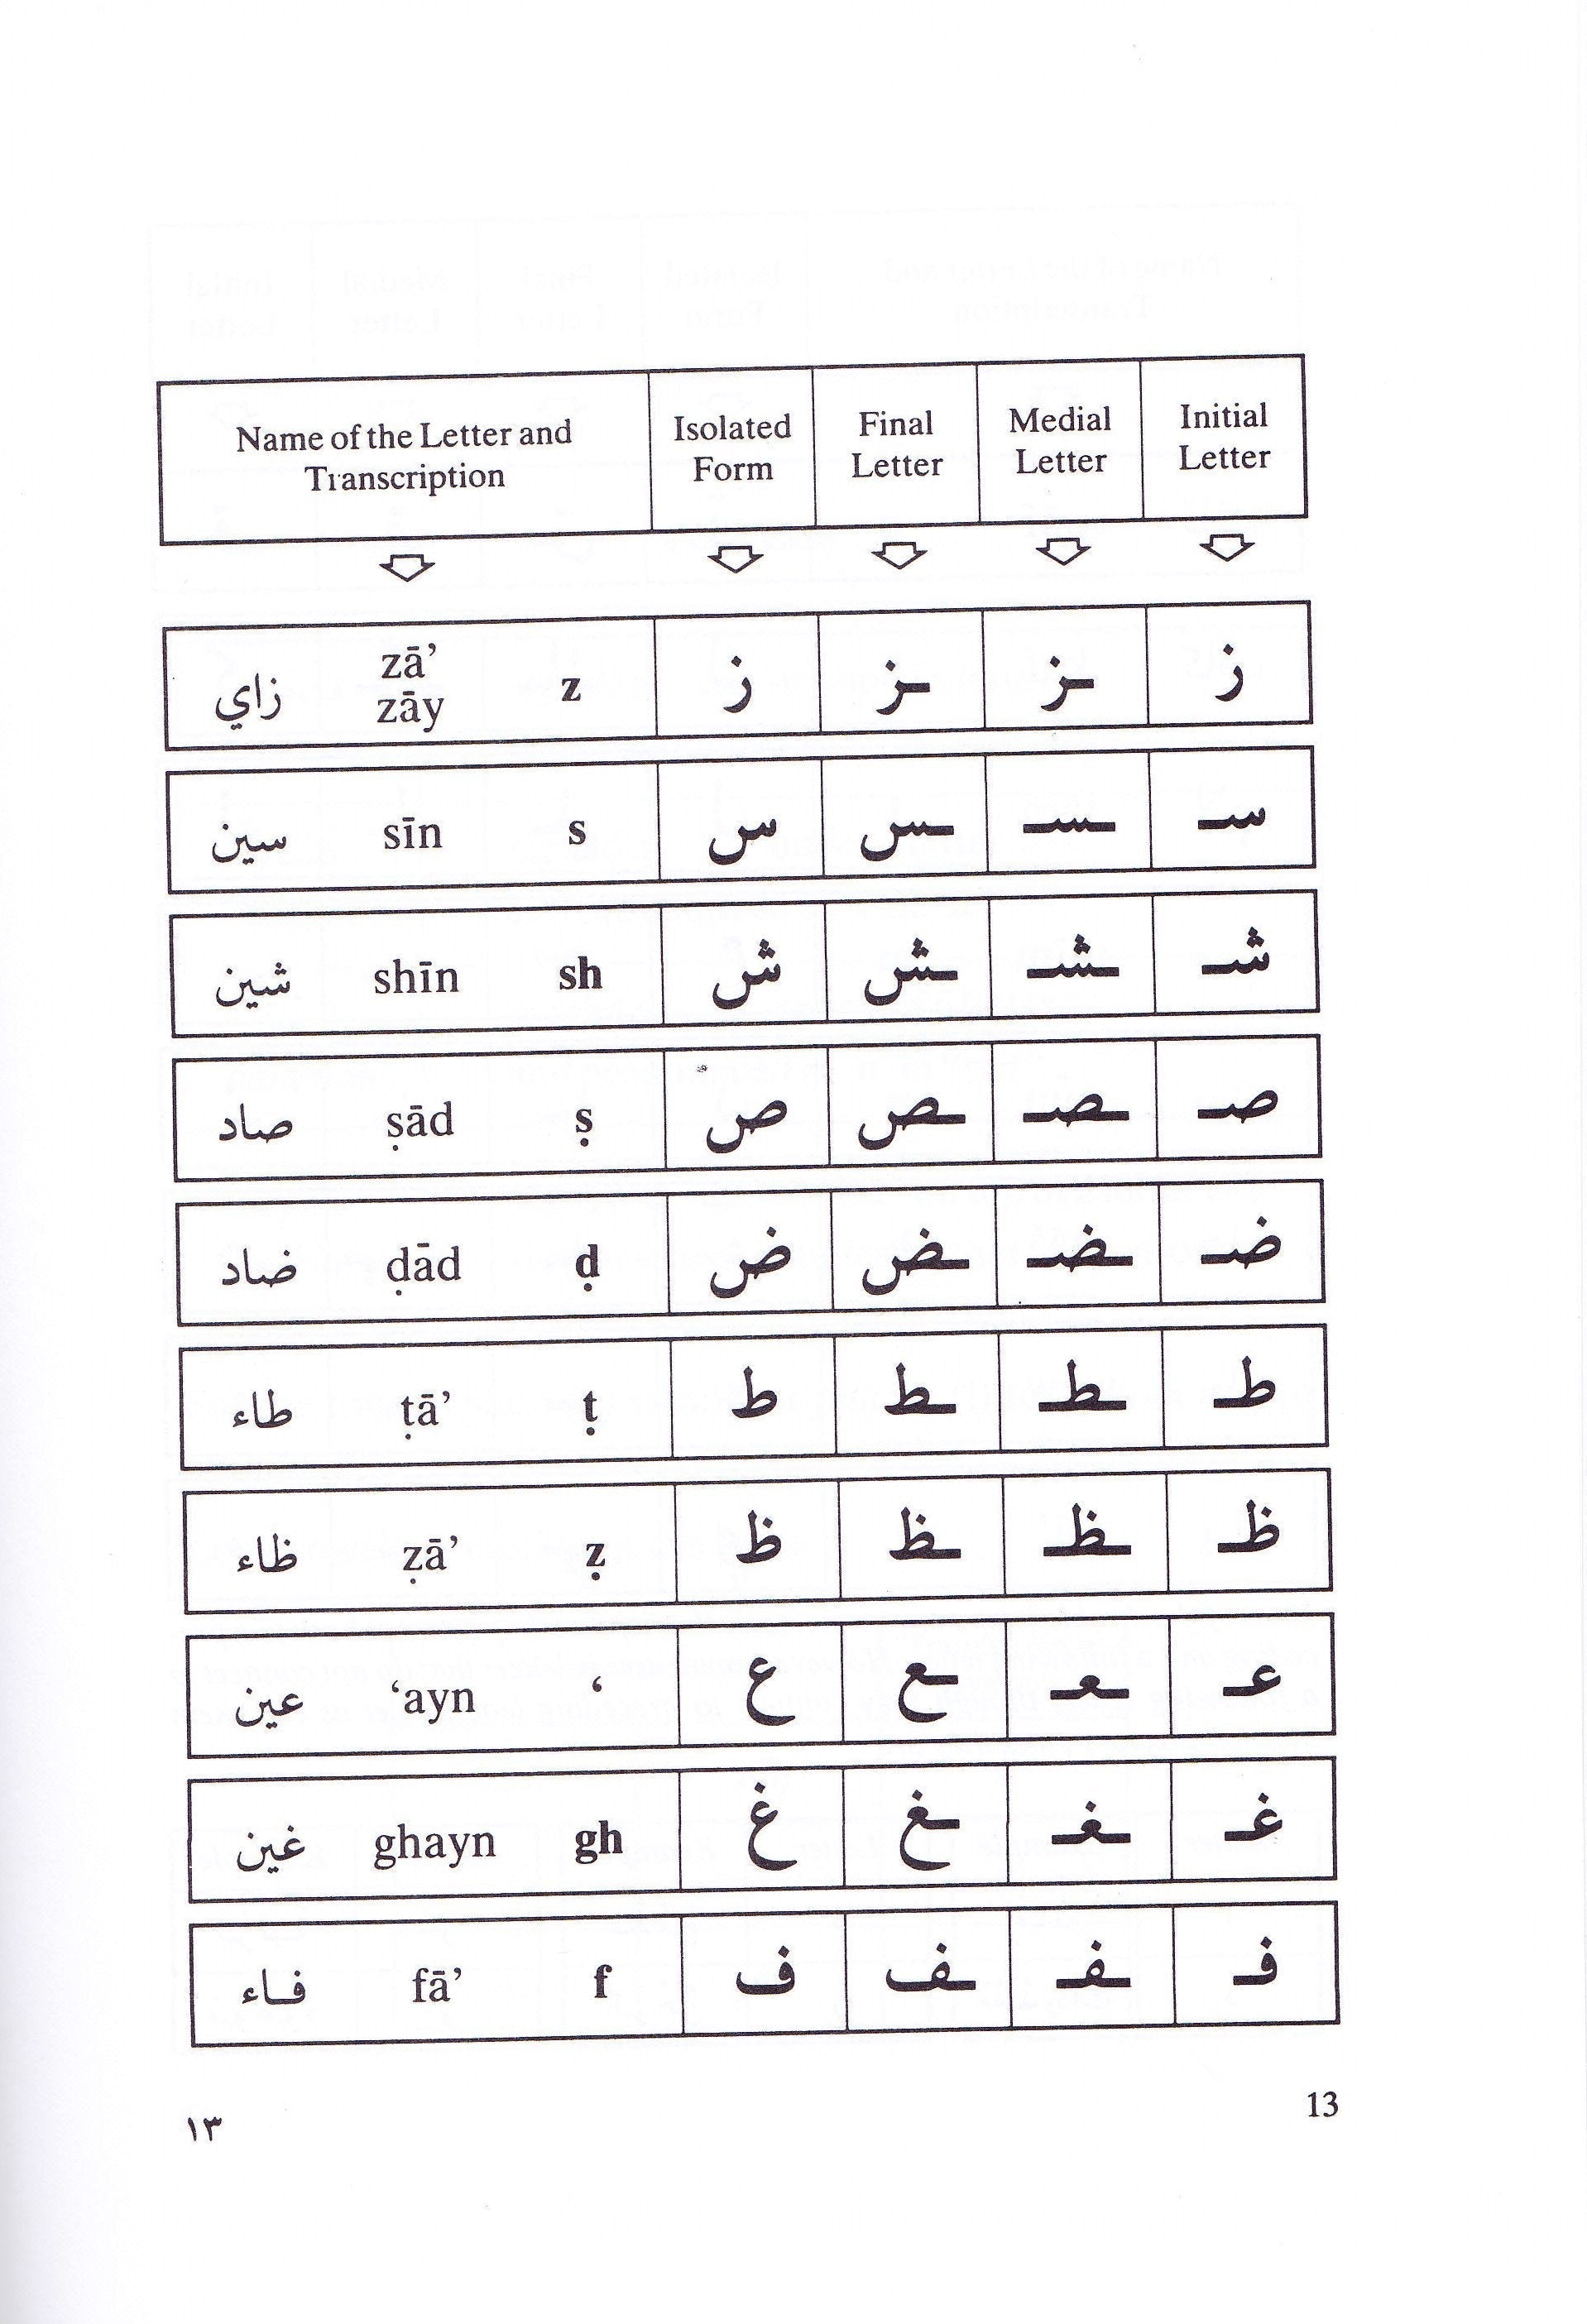 Name of the Letter and Transcription Isolated Form Final Letter Medial Letter Initial Letter
زاي zā’ zāy z ز ـز ـز ز
سين sīn s س ـس ـسـ سـ
شين shīn sh ش ـش ـشـ شـ
صاد ṣād ṣ ص ـص ـصـ صـ
ضاد ḍād ḍ ض ـض ـضـ ضـ
طاء ṭā’ ṭ ط ـط ـطـ طـ
ظاء ẓā’ ẓ ظ ـظ ـظـ ظـ
عين ‘ayn ‘ ع ـع ـعـ عـ
غين ghayn gh غ ـغ ـغـ غـ
فاء fā’ f ف ـف ـفـ فـ
١٣ 13